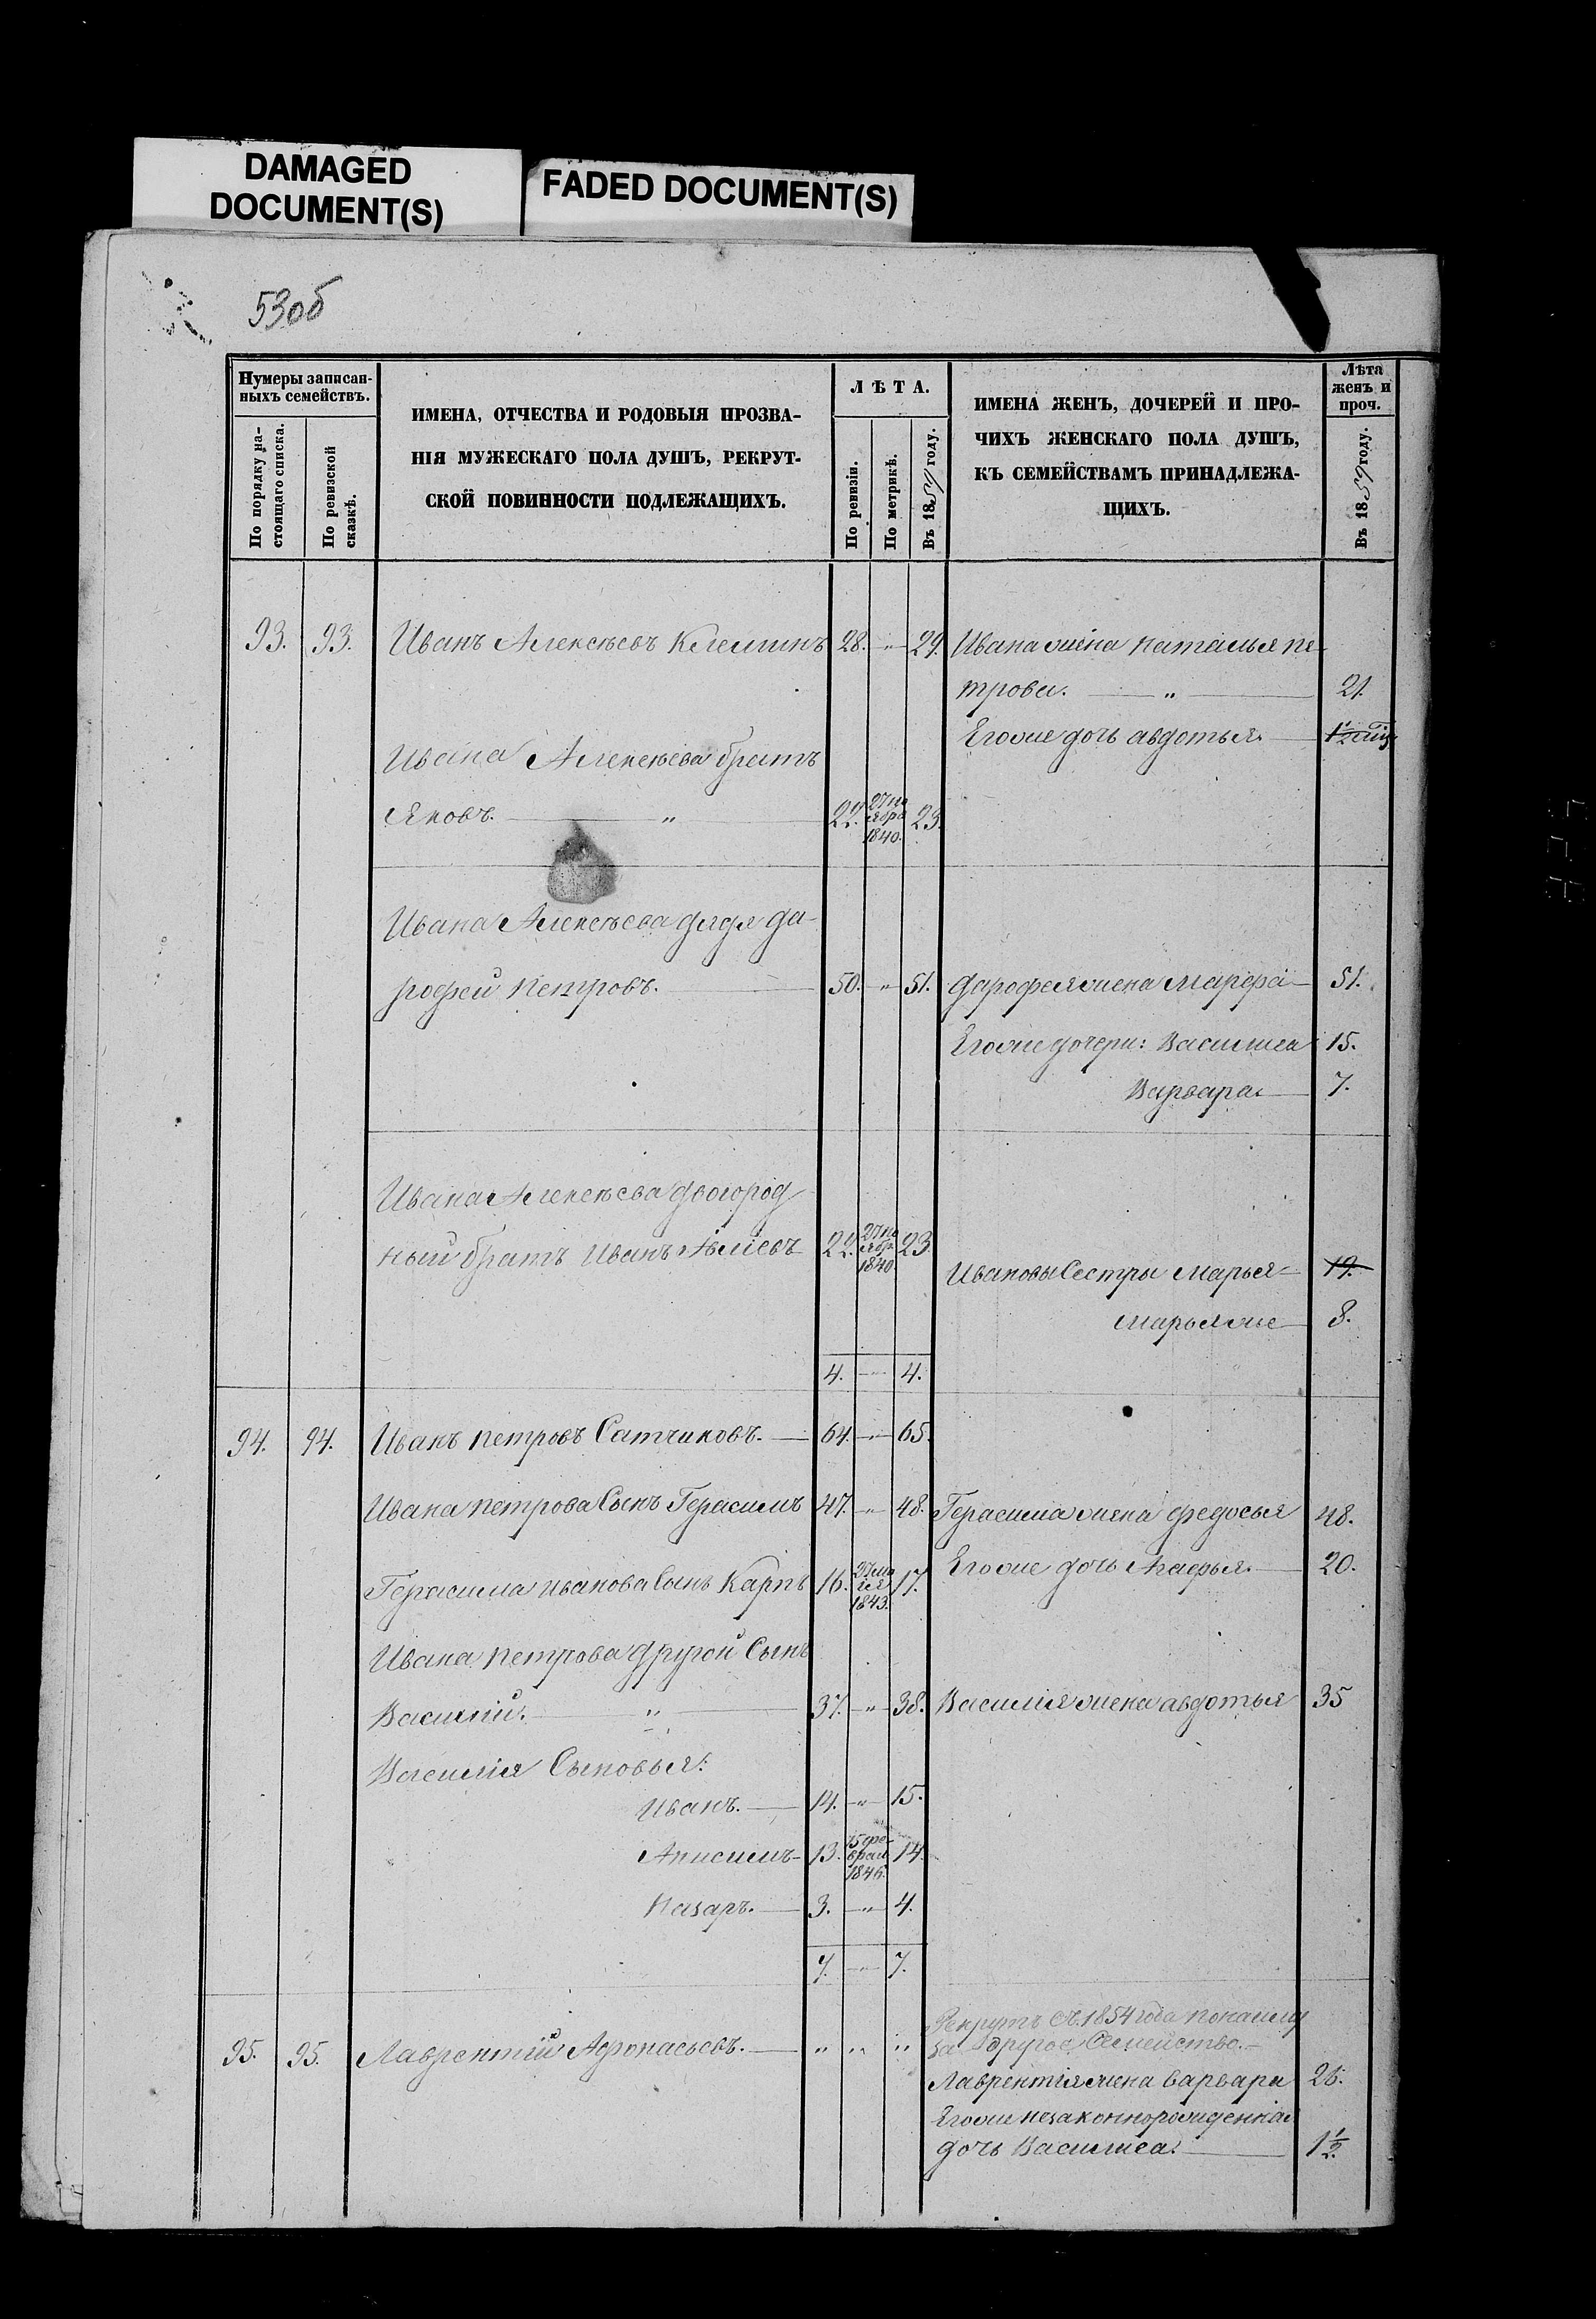 DAMAGED
DOCUMENT(S)
FADED DOCUMENT(S)
53об
Нумеры записан-
ныхъ семействъ.
По порядку на-
стоящаго списка.
По ревизской
сказкѣ.
ИМЕНА, ОТЧЕСТВА И РОДОВЫЯ ПРОЗВА-
НІЯ МУЖЕСКАГО ПОЛА ДУШЪ, РЕКРУТ-
СКОЙ ПОВИННОСТИ ПОДЛЕЖАЩИХЪ.
ЛѢТА.
По ревизіи.
По метрикѣ.
Въ 1859 году.
ИМЕНА ЖЕНЪ, ДОЧЕРЕЙ И ПРО-
ЧИХЪ ЖЕНСКАГО ПОЛА ДУШЪ,
КЪ СЕМЕЙСТВАМЪ ПРИНАДЛЕЖА-
ЩИХЪ.
Лѣта
женъ и
проч.
Въ 1859 году.
93. 93. Иванъ Алексѣевъ Клемшнъ 28. — " — 29. Ивана жена наталья пе-
трова. — " — 21.
Егоже дочь авдотья.
Ивана Алексѣева братъ
Яковъ. — " — 22. 27 но
ября
1840. 23.
Ивана Алексѣева дядя да-
рофей петровъ. — 50. — " — 51. дарофея жена Марфа — 51.
Егоже дочери: Василиса 15.
Варвара — 7.
Ивана Алексѣева двогород
ный братъ Иванъ 22. 27 но
ябр
1840 23.
Ивановы Сестры Марья — 19.
Марья же — 8.
4. — 4.
94. 94. Иванъ петровъ Сатчиковъ. — 64. — " — 65.
Ивана петрова Сынъ Герасимъ 47. — " — 48. Герасима жена федосья 48.
Герасима иванова Сынъ Карпъ 16. 1843. 17. Егоже дочь Агафья. — 20.
Ивана петрова другой Сынъ
Василій. — " — 37. — " — 38. Василія жена авдотья 35
Василія Сыновья:
Иванъ. — 14. — " — 15.
Анисимъ — 13. 15 фе-
врал
1846. 14.
Назаръ. — 3. — " — 4.
7. — 7.
95. 95. Лаврентій Афонасьевъ. — " " "
Рекрутъ съ 1854 года по найму
за другое Семейство. —
Лаврентія жена варвара 26.
Егоже незаконнорожденная
дочь Василиса. — 1 1/2.